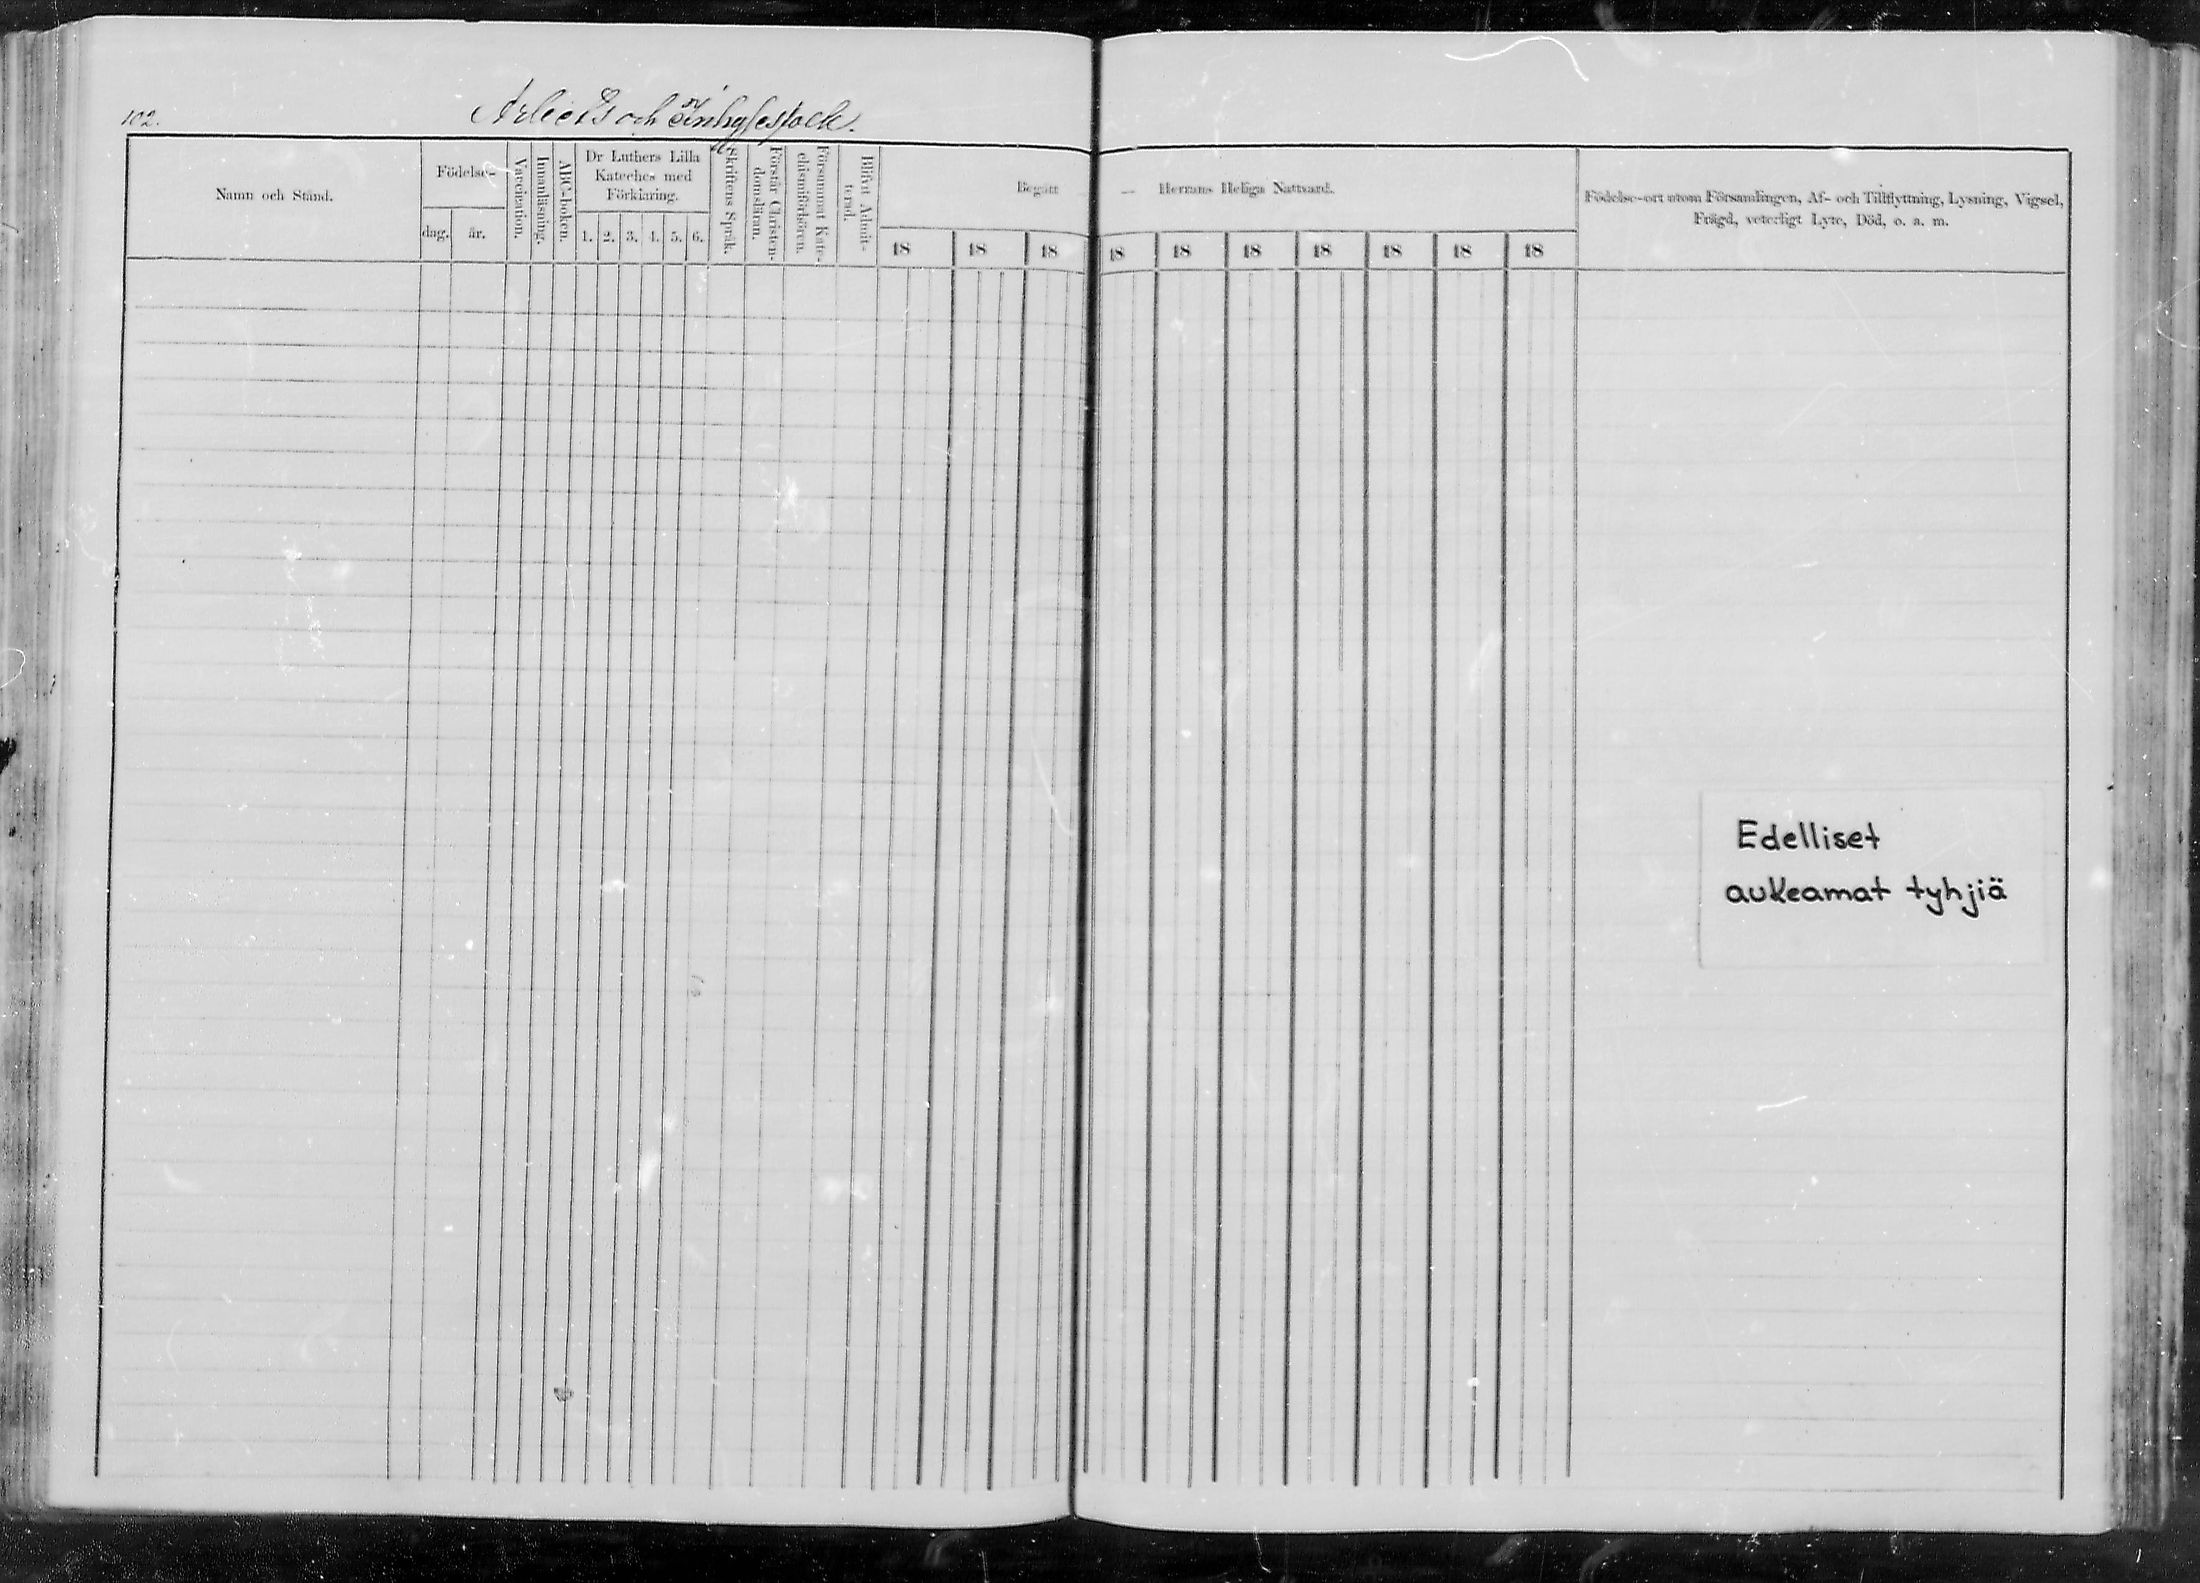 102.
Arbets och Inhysesfolk.
Namn och Stånd.
Födelse-
dag.
år.
Vaccination.
Innanläsning.
ABC-boken.
Dr Luthers Lilla
Kateches med
Förklaring.
1. 2. 3. 4. 5. 6.
Skriftens Språk.
Förstår Christen-
domsläran.
Försummat Kate-
chismiförhören.
Blifvit Admit-
terad.
Begått — Herrans Heliga Nattvard.
18 18 18 18 18 18 18 18 18 18
Födelse-ort utom Församlingen, Af- och Tillflyttning, Lysning, Vigsel,
Frägd, veterligt Lyte, Död, o. a. m.
Edelliset
aukeamat tyhjiä